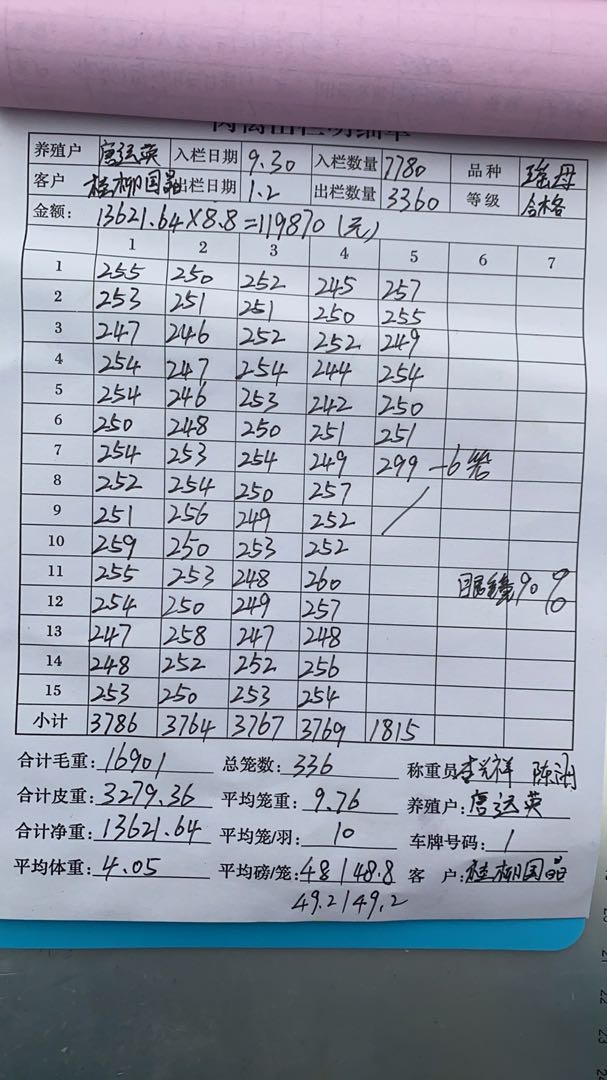 养殖户 唐运英 入栏日期 9.30 入栏数量 7780 品种 瑶母
客户 桂柳国晶 出栏日期 1.2 出栏数量 3360 等级 合格
金额: 13621.64×8.8=119870(元)
1 2 3 4 5 6 7
1 255 250 252 245 257
2 253 251 251 250 255
3 247 246 252 252 249
4 254 247 254 244 254
5 254 246 253 242 250
6 250 248 250 251 251
7 254 253 254 249 299 -6笼
8 252 254 250 257
9 251 256 249 252
10 259 250 253 252
11 255 253 248 260 眼镜90%
12 254 250 249 257
13 247 258 247 248
14 248 252 252 256
15 253 250 253 254
小计 3786 3764 3767 3769 1815
合计毛重: 16901 总笼数: 336 称重员
合计皮重: 3279.36 平均笼重: 9.76 养殖户: 唐运英
合计净重: 13621.64 平均笼/羽: 10 车牌号码: 1
平均体重: 4.05 平均磅/笼: 48/48.8 客 户: 桂柳国晶
49.2/49.2